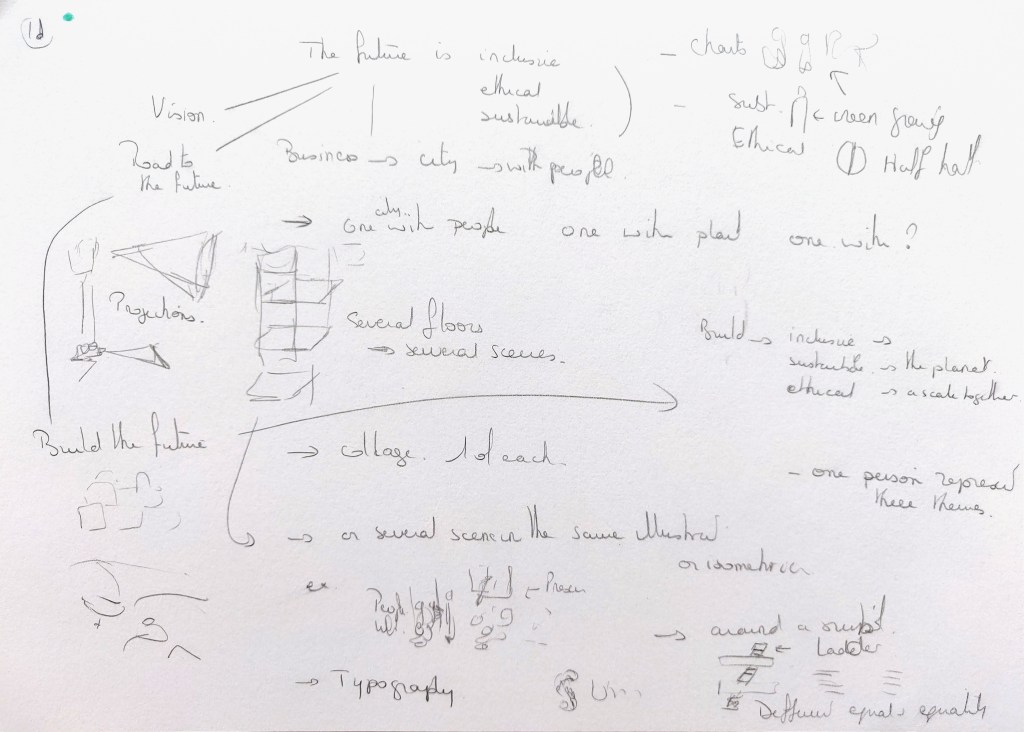 1d
The future is inclusive
ethical
sustainable.
Vision.
Road to
the future.
Business → city → with people.
- charts
- Sust. ← green growing
Ethical Half half
→ one with people one with plant one with ?
city..
Projections.
Several floors
→ several scenes.
Build → inclusive →
sustainable → the planet.
ethical → a scale together.
Build the future
→ collage. 1 of each.
- one person represent
three themes.
→ or several scene in the same illustrat
or isometric
ex
People
←
→ around a
← Ladder
→ Typography
Different equals equality